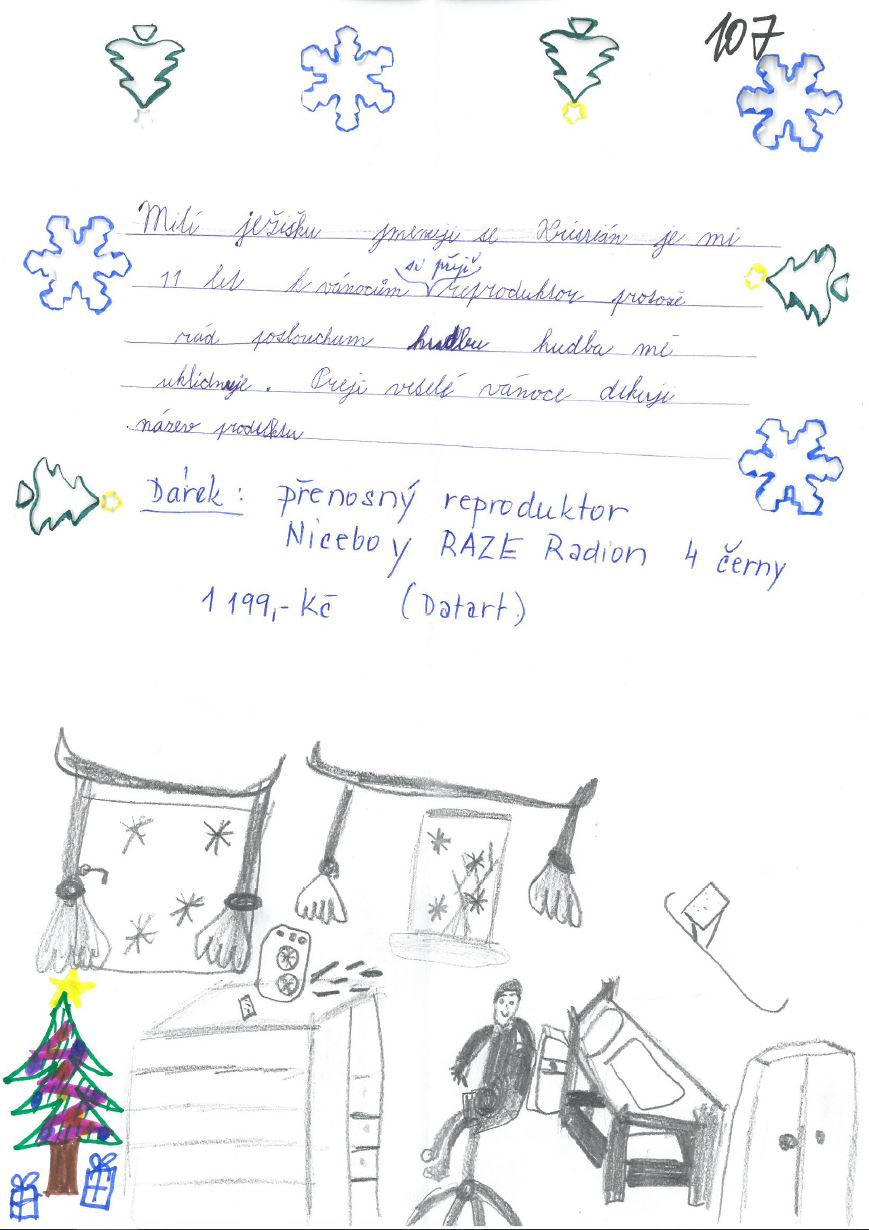 107
Milí ježišku jmenuji se Kristián je mi
11 let k vánocům si přeji reproduktory protože
rád poslouchám hudbu hudba mě
uklidnuje. Přeji veselé vánoce dekuji
název produktu
Dárek: přenosný reproduktor
Niceboy RAZE Radion 4 černy
1 199,- Kč (Datart)